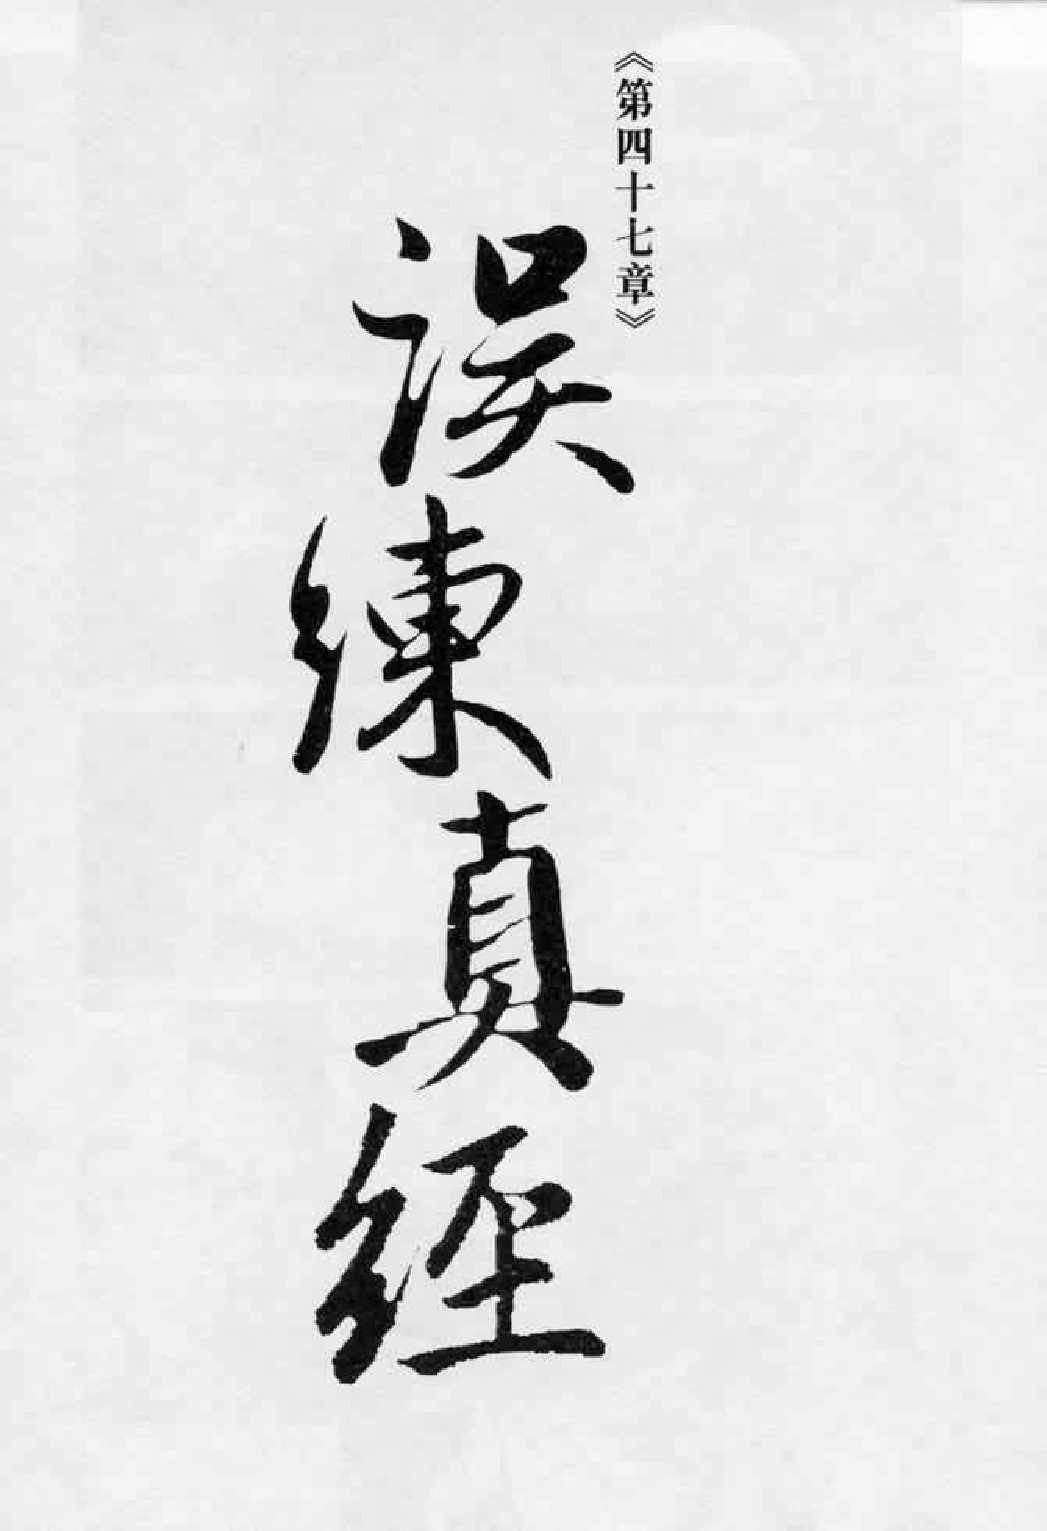 《第四十七章》
误練真経